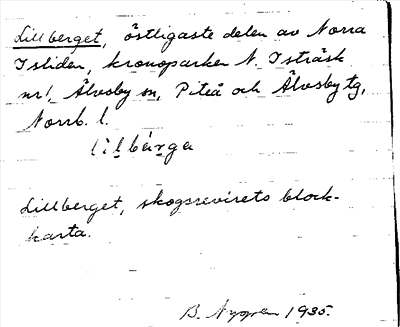 Lillberget, östligaste delen av Norra
Isliden, kronoparken N. Isträsk
nr 1, Älvsby sn, Piteå och Älvsby tg,
Norrb. l.
lilbärga
Lillberget, skogsrevirets block-
karta.
B. Nygren 1935.